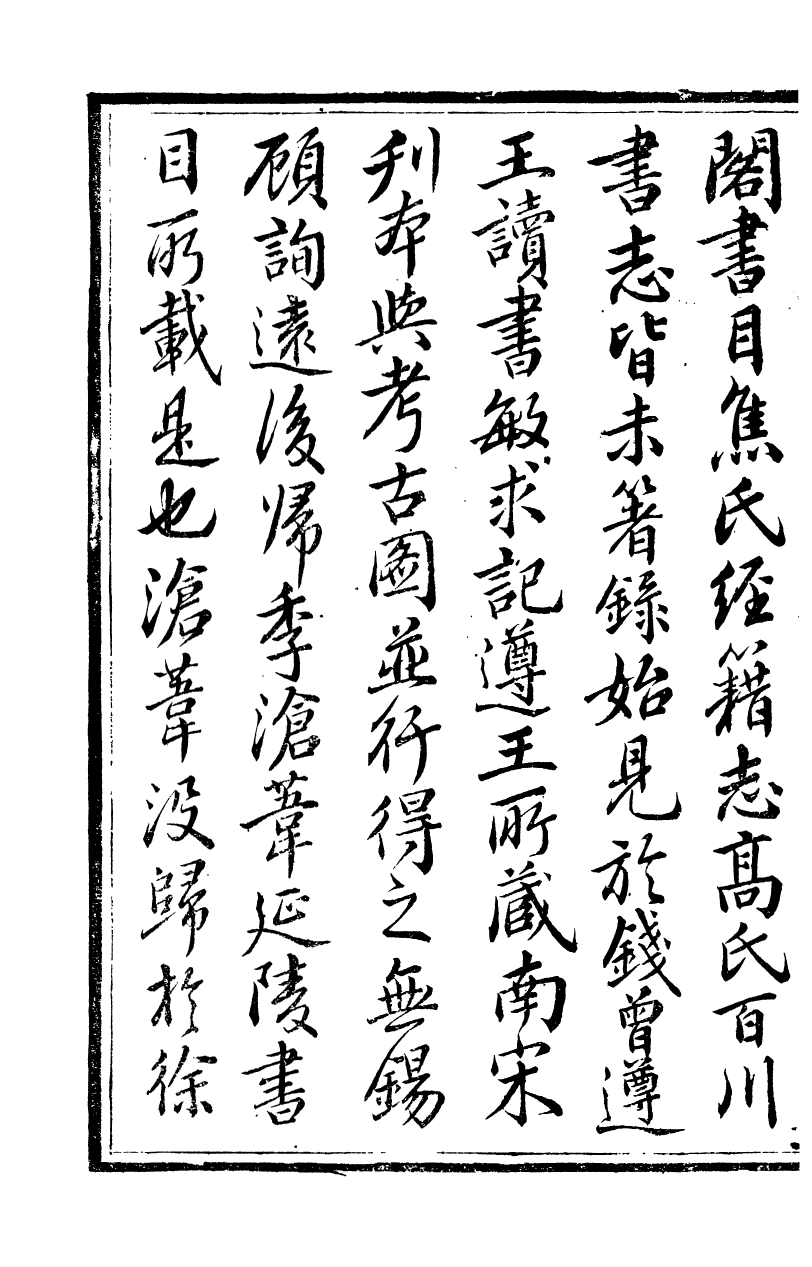 閣書目焦氏經籍志高氏百川
書志皆未箸錄始見於錢曾遵
王讀書敏求記遵王所藏南宋
刊本與考古圖並行得之無錫
顧詢遠後帰季滄葦延陵書
目所載是也滄葦没歸於徐